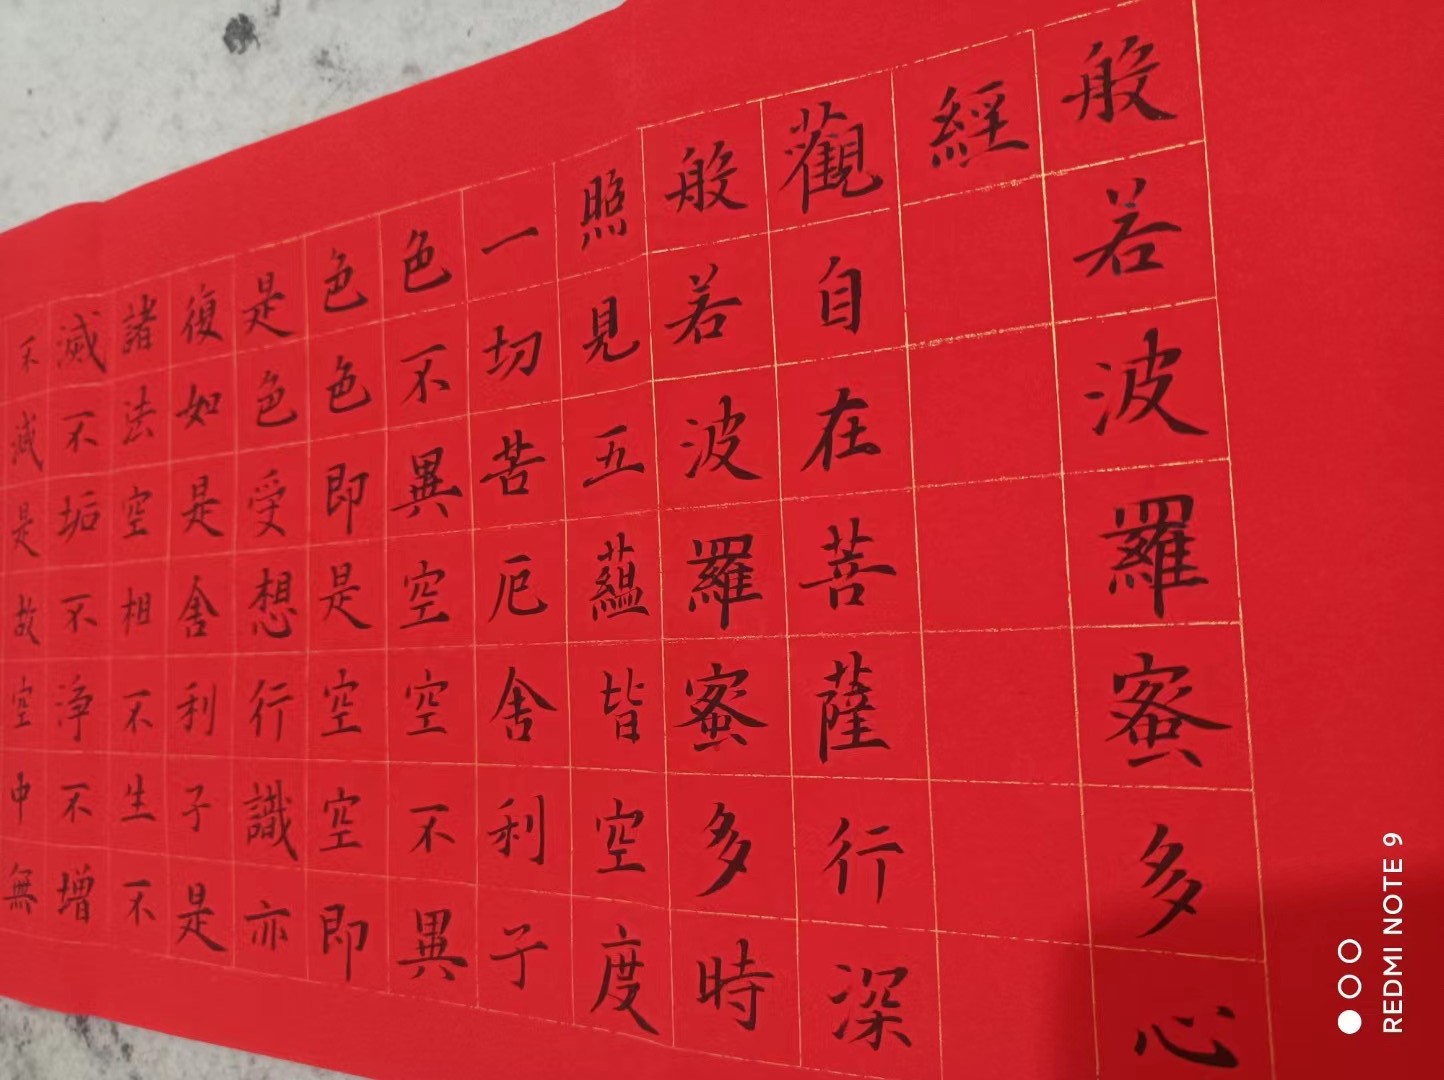 般若波羅蜜多心
經
觀自在菩薩行深
般若波羅蜜多時
照見五蘊皆空度
一切苦厄舍利子
色不異空空不異
色色即是空空即
是色受想行識亦
復如是舍利子是
諸法空相不生不
滅不垢不淨不增
不減是故空中無
REDMI NOTE 9